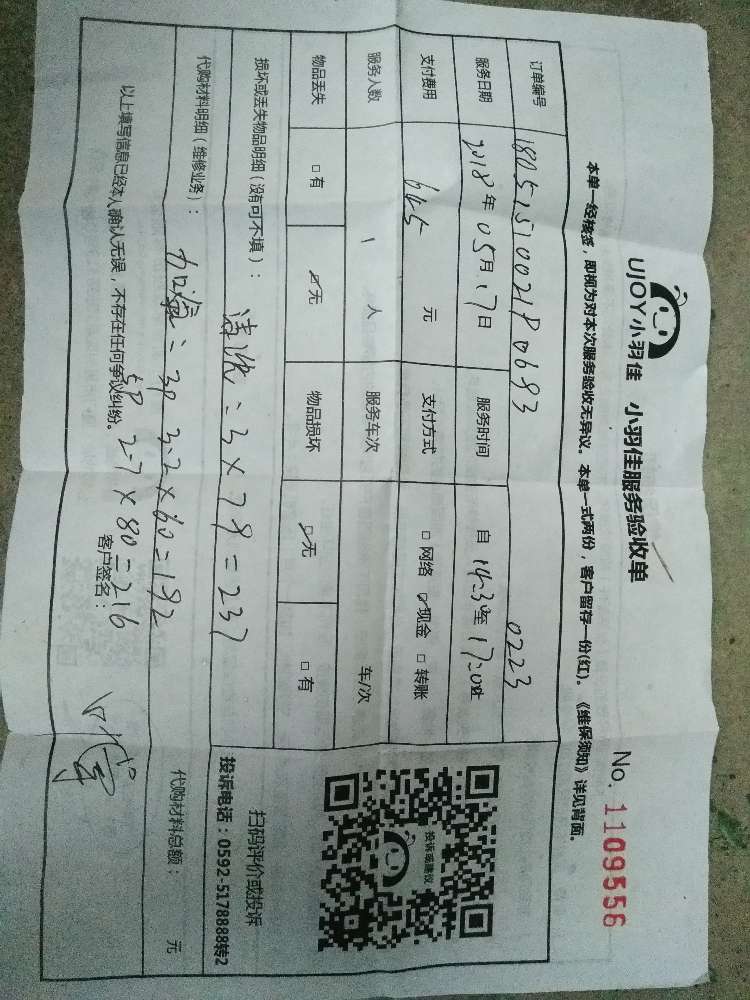 UJOY小羽佳 小羽佳服务验收单
No. 1109556
本单一经核签,即视为对本次服务验收无异议。本单一式两份,客户留存一份(红)。《维保须知》详见背面。
订单编号 0223
服务日期 2018年05月17日 服务时间 自14:30至17:00止
支付费用 645 元 支付方式 □网络 ☑现金 □转账
服务人数 1 人 服务车次 车/次
物品丢失 □有 ☑无 物品损坏 ☑无 □有
损坏或丢失物品明细(没有可不填): 清洗=3×79=237
代购材料明细(维修业务): 加氟=3P 3.2×60=192
5P 2.7×80=216
代购材料总额: 元
以上填写信息已经本人确认无误,不存在任何争议纠纷。 客户签名:
投诉或建议
扫码评价或投诉
投诉电话:0592-5178888转2